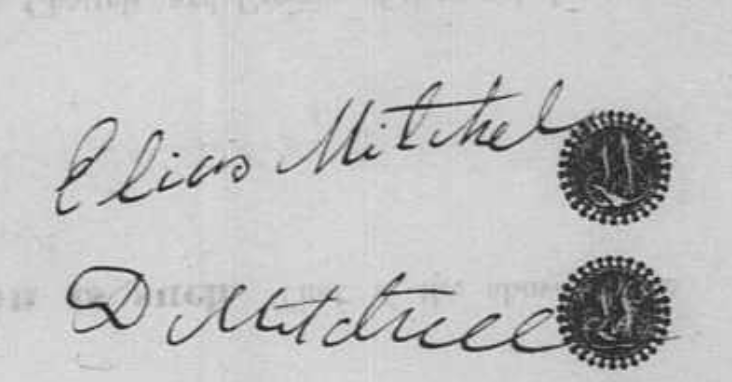 Elias Mitchel
D Mitchell